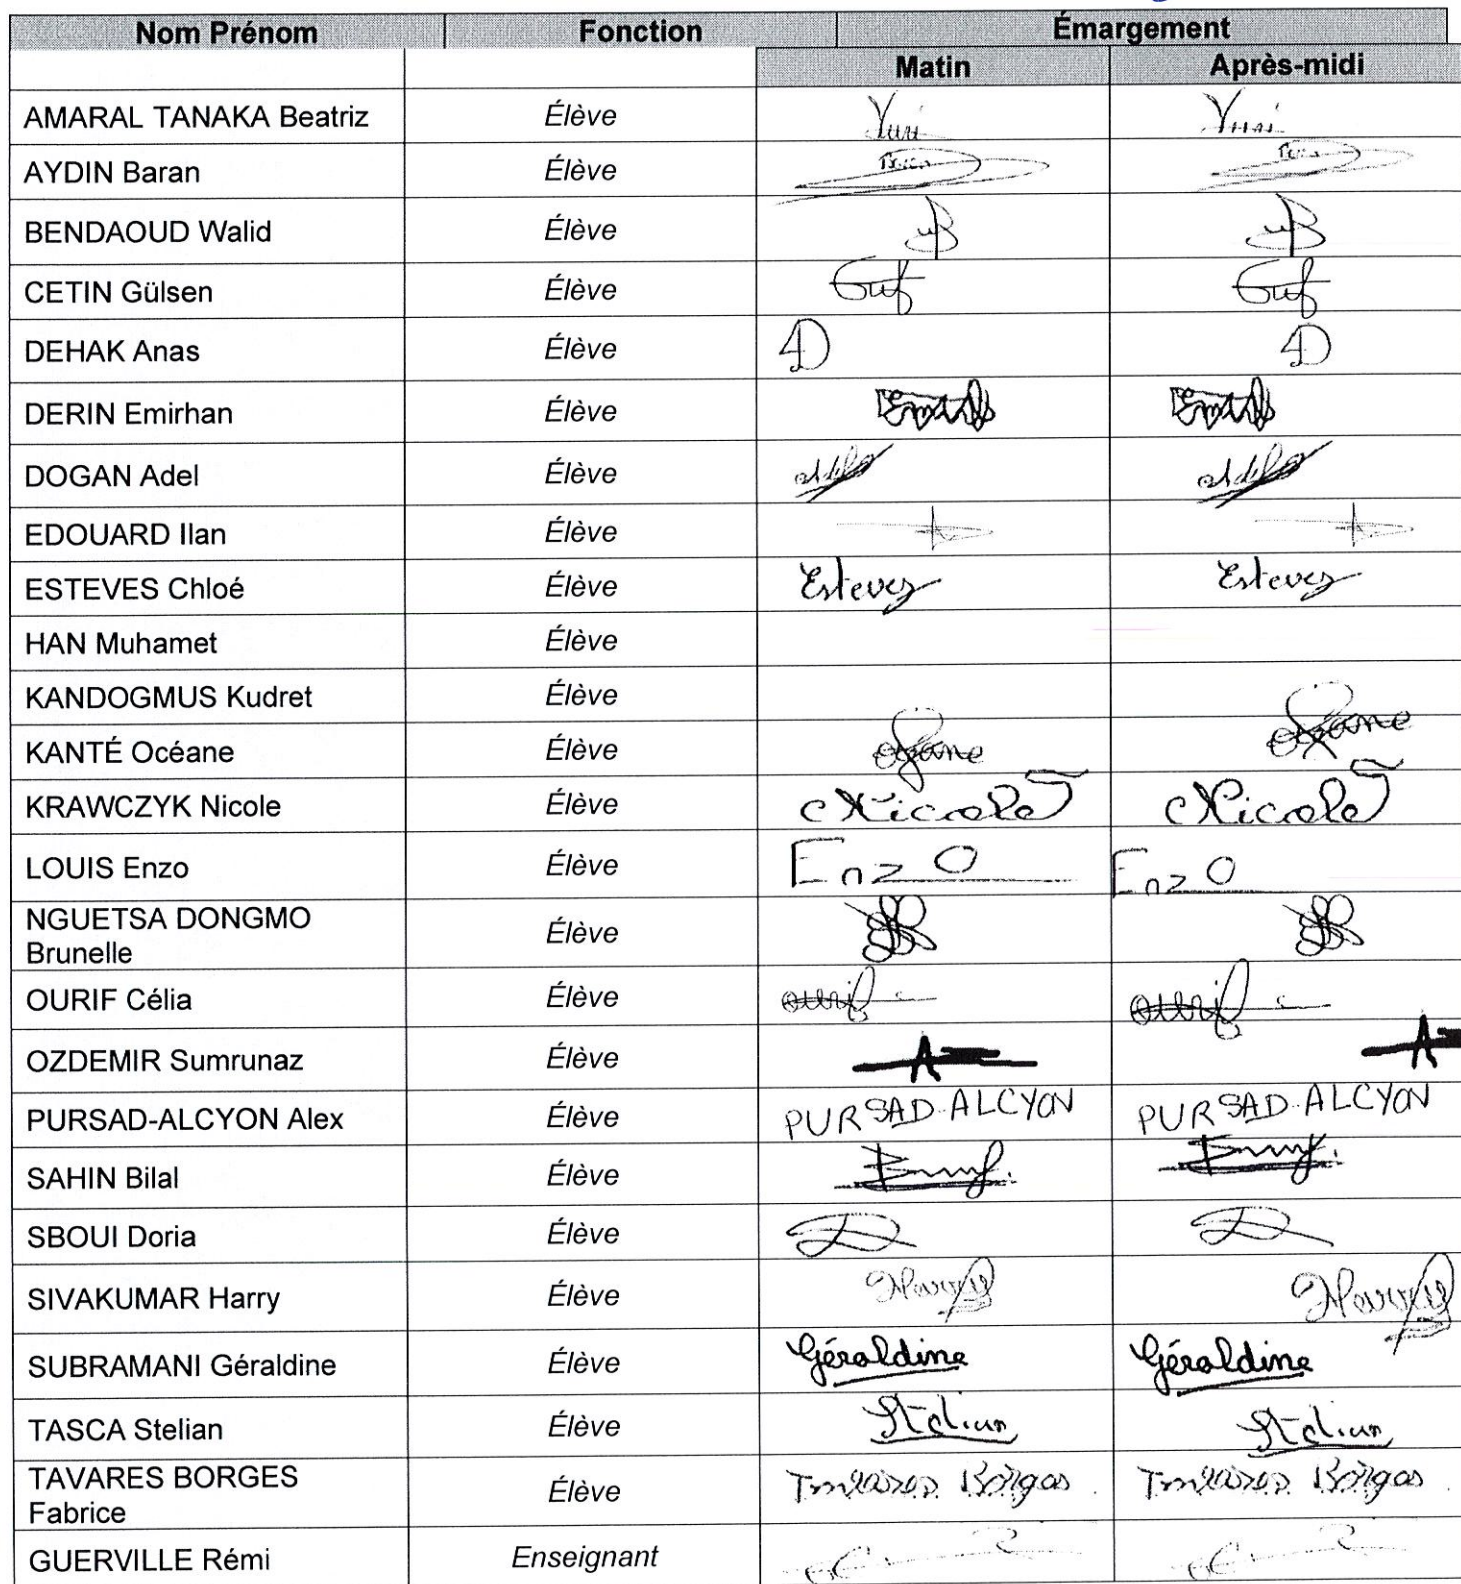 Nom Prénom Fonction Émargement
Matin Après-midi
AMARAL TANAKA Beatriz Élève
AYDIN Baran Élève
BENDAOUD Walid Élève
CETIN Gülsen Élève
DEHAK Anas Élève
DERIN Emirhan Élève
DOGAN Adel Élève
EDOUARD Ilan Élève
ESTEVES Chloé Élève Esteves Esteves
HAN Muhamet Élève
KANDOGMUS Kudret Élève
KANTÉ Océane Élève
KRAWCZYK Nicole Élève Nicole Nicole
LOUIS Enzo Élève Enzo Enzo
NGUETSA DONGMO
Brunelle Élève
OURIF Célia Élève ourif ourif
OZDEMIR Sumrunaz Élève
PURSAD-ALCYON Alex Élève PURSAD-ALCYON PURSAD-ALCYON
SAHIN Bilal Élève
SBOUI Doria Élève
SIVAKUMAR Harry Élève Harry Harry
SUBRAMANI Géraldine Élève Géraldine Géraldine
TASCA Stelian Élève Stelian Stelian
TAVARES BORGES
Fabrice Élève
GUERVILLE Rémi Enseignant